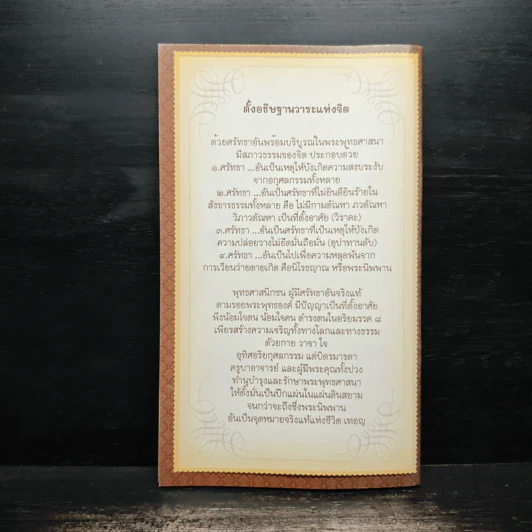 ตั้งอธิษฐานวาระแห่งจิต
ด้วยศรัทธาอันพร้อมบริบูรณ์ในพระพุทธศาสนา
มีสภาวธรรมของจิต ประกอบด้วย
๑.ศรัทธา ...อันเป็นเหตุให้บังเกิดความสงบระงับ
จากอกุศลกรรมทั้งหลาย
๒.ศรัทธา ...อันเป็นศรัทธาที่ไม่ยินดียินร้ายใน
สังขารธรรมทั้งหลาย คือ ไม่มีกามตัณหา ภวตัณหา
วิภาวตัณหา เป็นที่ตั้งอาศัย (วิราคะ)
๓.ศรัทธา ...อันเป็นศรัทธาที่เป็นเหตุให้บังเกิด
ความปล่อยวางไม่ยึดมั่นถือมั่น (อุปาทานดับ)
๔.ศรัทธา ...อันเป็นไปเพื่อความหลุดพ้นจาก
การเวียนว่ายตายเกิด คือนิโรธญาณ หรือพระนิพพาน
พุทธศาสนิกชน ผู้มีศรัทธาอันจริงแท้
ตามรอยพระพุทธองค์ มีปัญญาเป็นที่ตั้งอาศัย
พึงน้อมใจตน น้อมใจคน ดำรงตนในอริยมรรค ๘
เพียรสร้างความเจริญทั้งทางโลกและทางธรรม
ด้วยกาย วาจา ใจ
อุทิศอริยกุศลกรรม แด่บิดรมารดา
ครูบาอาจารย์ และผู้มีพระคุณทั้งปวง
ทำนุบำรุงและรักษาพระพุทธศาสนา
ให้ตั้งมั่นเป็นปึกแผ่นในแผ่นดินสยาม
จนกว่าจะถึงซึ่งพระนิพพาน
อันเป็นจุดหมายจริงแท้แห่งชีวิต เทอญ